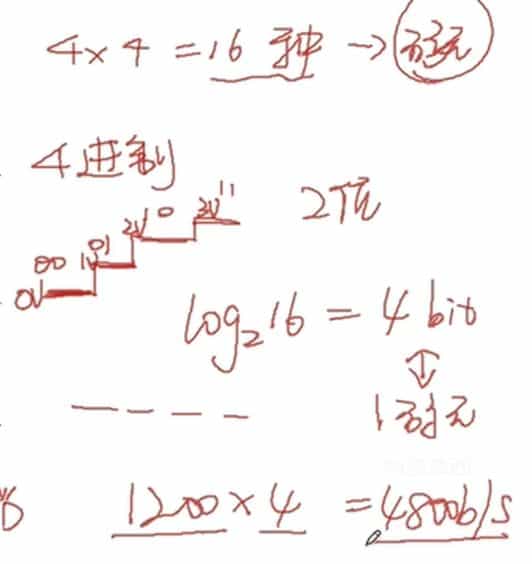 4×4=16种→码元
4进制
00 01 10 11
0V 1V 2V 3V
2位
log₂16=4bit
↕
1码元
1200×4=4800b/s